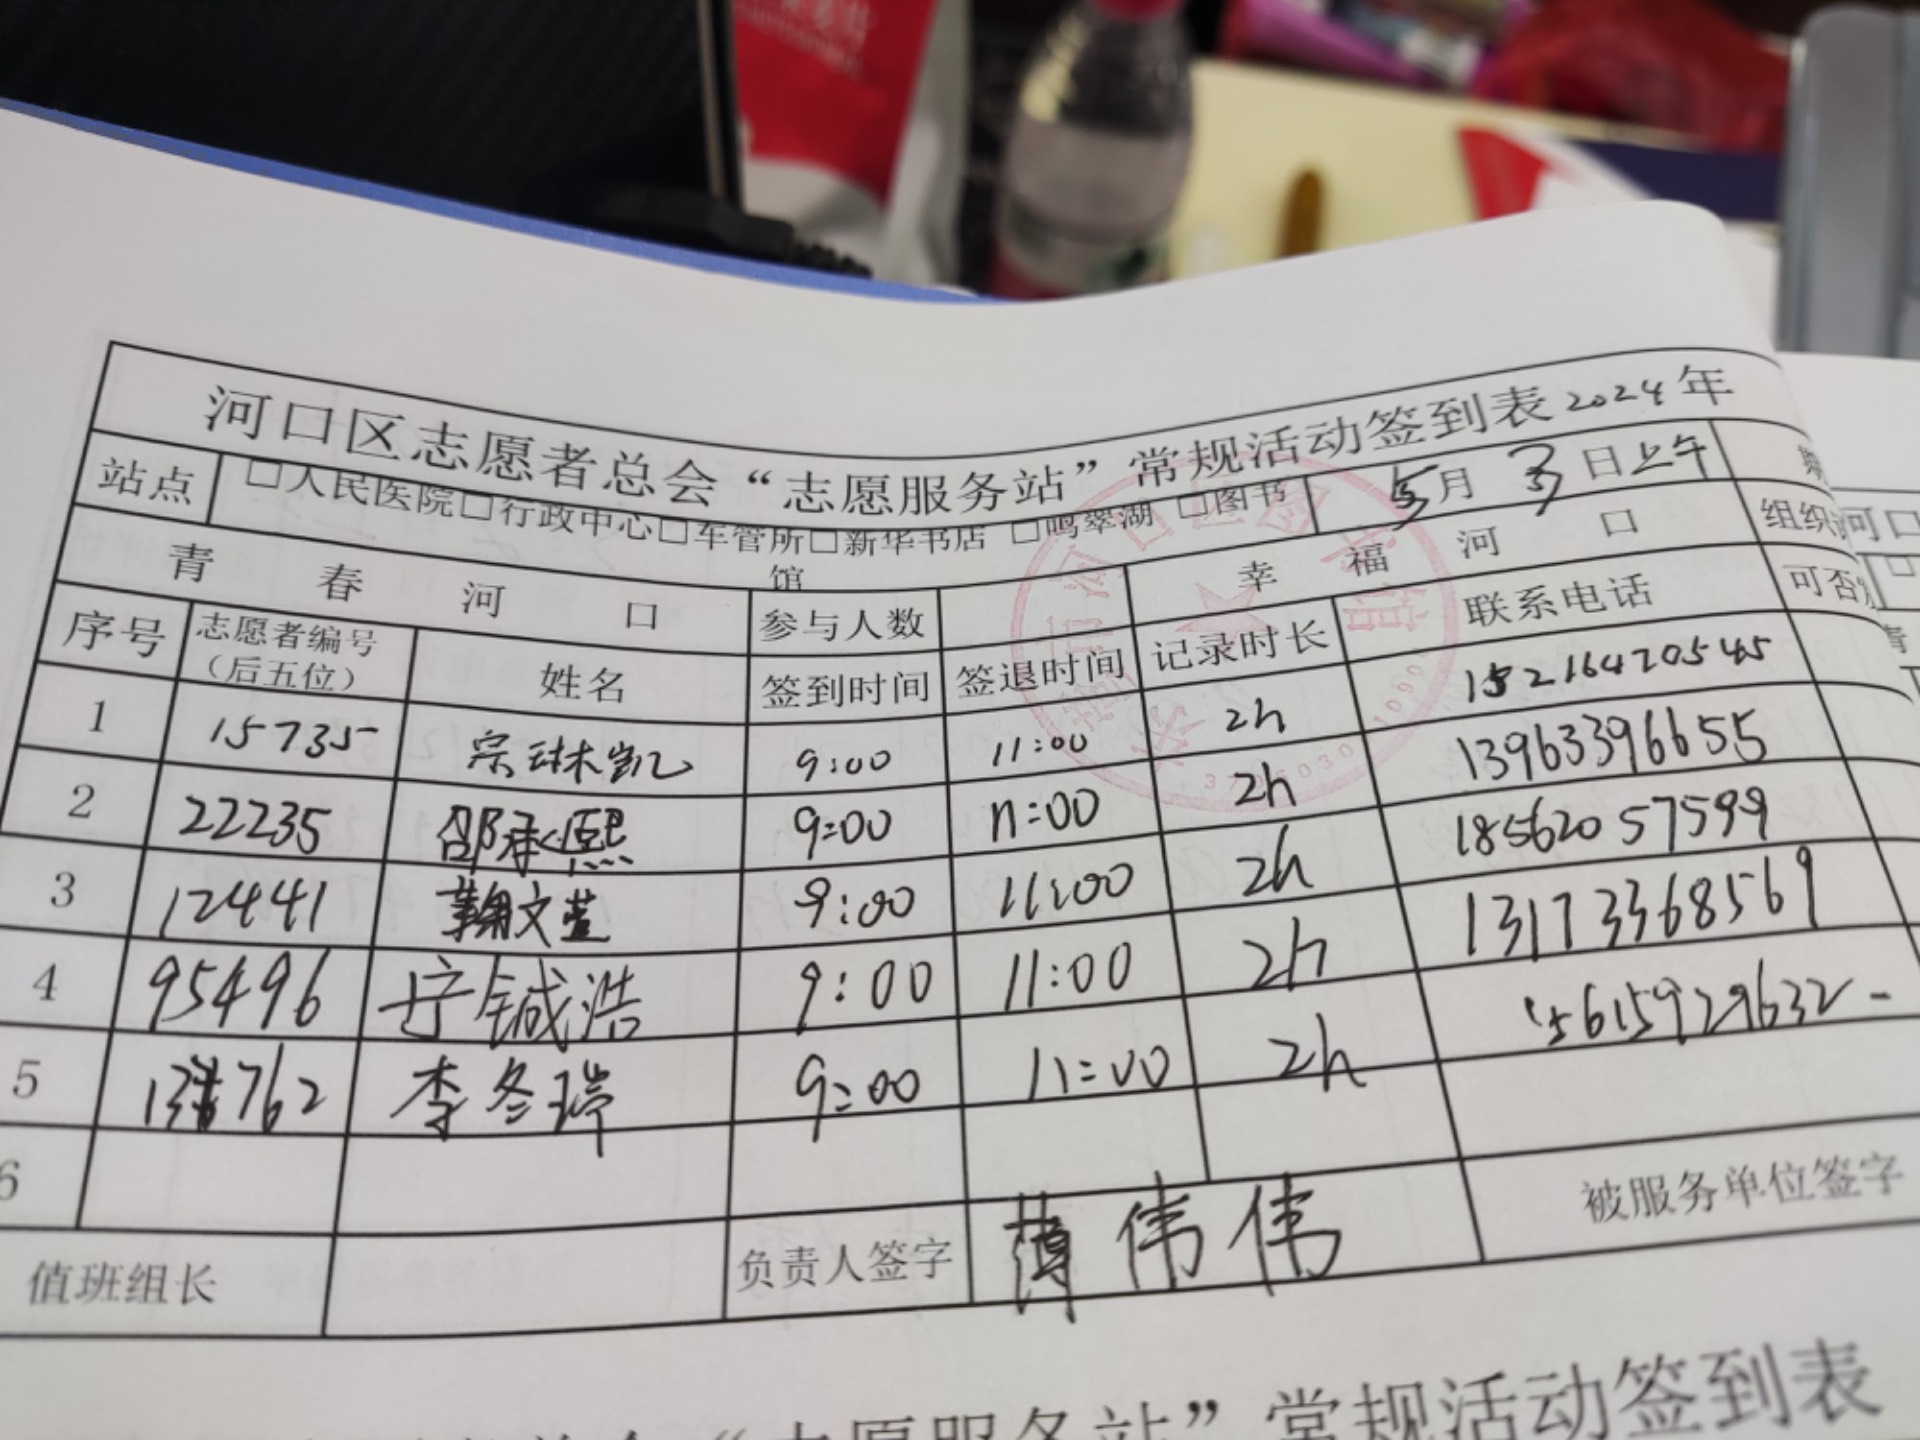 河口区志愿者总会“志愿服务站”常规活动签到表2024年
站点 □人民医院□行政中心□车管所□新华书店 □鸣翠湖 □图书馆 5月3日上午
青春河口 参与人数 幸福河口 组织
序号 志愿者编号（后五位） 姓名 签到时间 签退时间 记录时长 联系电话 可否
1 15735 宗琳凯 9:00 11:00 2h 15216420545
2 22235 邵承熙 9:00 11:00 2h 13963396655
3 12441 韩文萱 9:00 11:00 2h 18562057599
4 95496 于铖浩 9:00 11:00 2h 13173368569
5 李冬瑞 9:00 11:00 2h 15615929632
6
值班组长 负责人签字 薄伟伟 被服务单位签字
“志愿服务站”常规活动签到表